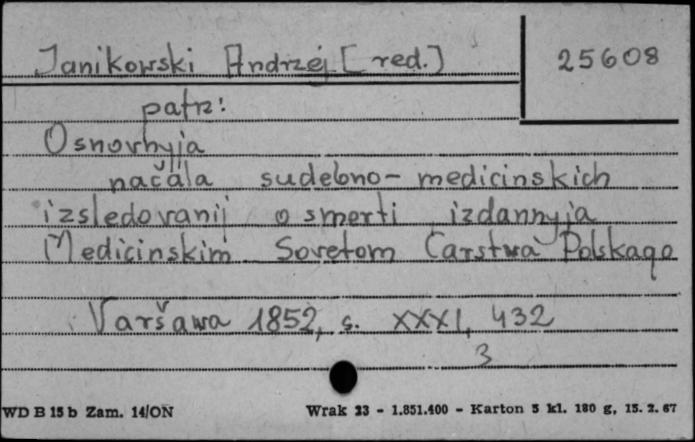 Janikowski Andrzej [red.]
25608
patrz:
Osnovnyja
načala sudebno-medicinskich
izsledovanij o smerti izdannyja
Medicinskim Sovetom Carstwa Polskago
Varšawa 1852, s. XXXI, 432
3
WD B 15 b Zam. 14/ON
Wrak 23 - 1.851.400 - Karton 5 kl. 180 g, 15. 2. 67